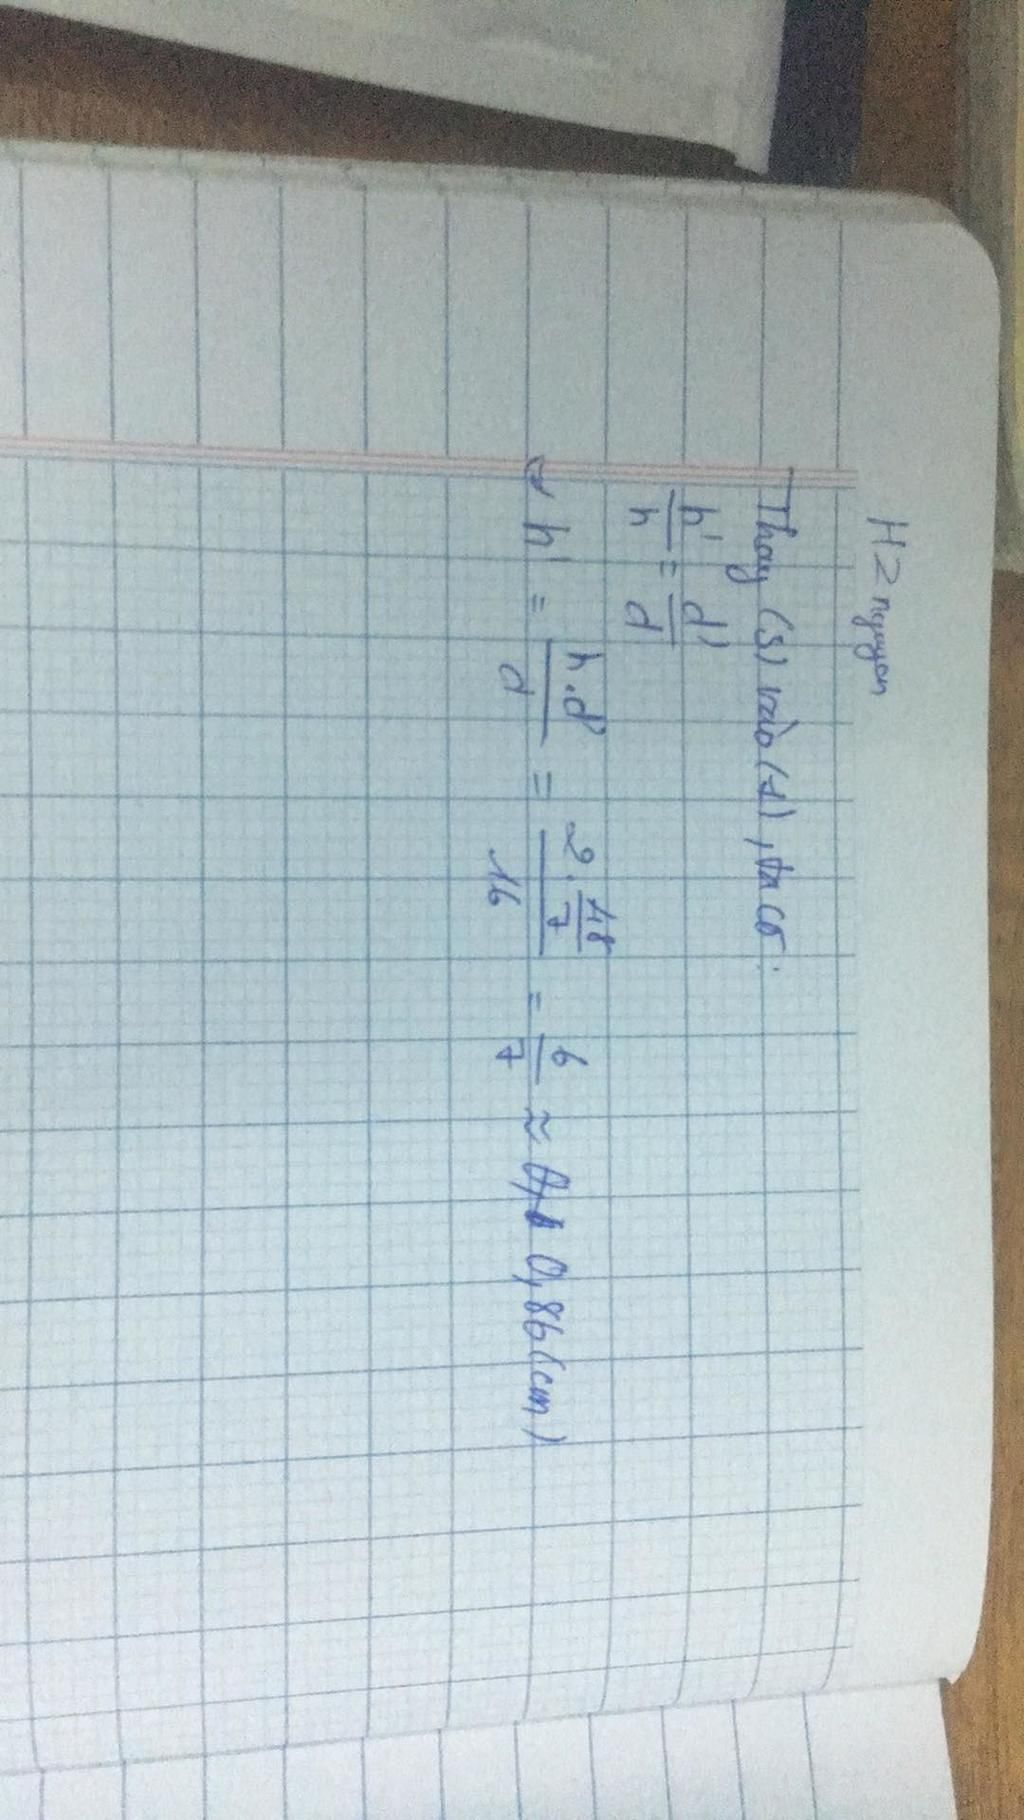 H2 nguyen
Thay (3) vào (1), ta có:
h'/h = d'/d
h' = h.d'/d = (2 . 48/7)/16 = 6/7 ≈ 0,86 (cm)